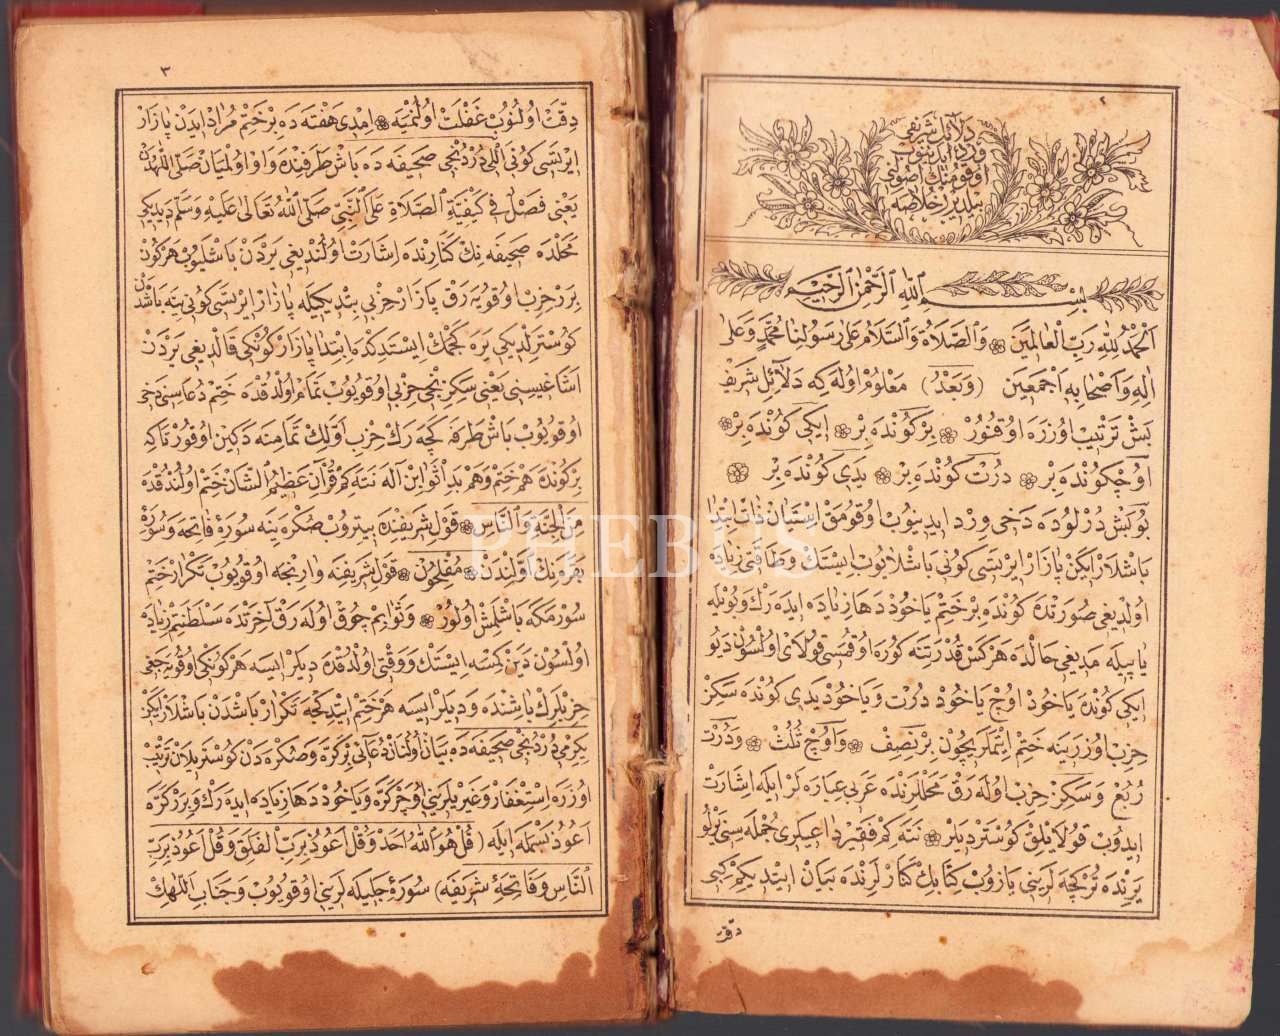 ٢
دلائل شريفى
ورد ايدينوب
اوقومنك اصولنى
بيلديرر خلاصه
بسم الله الرحمن الرحيم
اَلْحَمْدُ لِلّٰهِ رَبِّ الْعَالَمِينَ وَالصَّلَاةُ وَالسَّلَامُ عَلٰى رَسُولِنَا مُحَمَّدٍ وَعَلٰى
اٰلِهِ وَاَصْحَابِهِ اَجْمَعِينَ (وَبَعْدُ) معلوم اوله كه دلائل شريف
بش ترتيب اوزره اوقنور بر كونده بر ايكى كونده بر
اوچ كونده بر درت كونده بر يدى كونده بر
بو بش درلوده دخى ورد ايدينوب اوقومق ايستيان ذات ابتدا
باشلار ايكن پازار ايرتسى كونى باشلايوب ايستك وطاقتى زياده
اولديغى صورتده كونده بر ختم ياخود دها زياده ايده رك وبويله
ياپيله مديغى حالده هركس قدرتنه كوره اوقمسى قولاى اولسون ديو
ايكى كونده ياخود اوچ ياخود درت وياخود يدى كونده سكز
حزب اوزرينه ختم ايتملريچون بر نصف واوچ ثلث ودرت
ربع وسكز حزب اوله رق محللرنده عربى عباره لر ايله اشارت
ايدوب قولايلق كوستردیلر نته كم فقير داعيكرى جمله سنى يرلو
يرنده تركجه لرينى يازوب كتابك كنارلرنده بيان ايتديكم كبى
دقت
٣
دقت اولنوب غفلت اولنميه امدى هفته ده بر ختم مراد ايدن پازار
ايرتسى كونى اللى دردنجى صحيفه ده باش طرفنده واو اولميان صلى اللهدن
يعنى فصل فى كيفية الصلاة على النبى صلى الله تعالى عليه وسلم ديديكى
محلده صحيفه نك كنارنده اشارت اولنديغى يردن باشليوب هركون
برر حزب اوقويه رق پازار حزبى بتديكيله پازار ايرتسى كونى ينه باشدن
كوسترلديكى يره كچمك ايستدكده ابتدا پازار كونكى قالديغى يردن
اشاغيسنى يعنى سكزنجى حزبى اوقويوب تمام اولدقده ختم دعاسنى دخى
اوقويوب باش طرفه كچه رك حزب اولك تمامنه دكين اوقور تا كه
بر كونده هم ختم وهم بدأ ثوابن اله نته كم قرآن عظيم الشان ختم اولندقده
من الجنة والناس قول شريفنده بيتروب صكره ينه سورۀ فاتحه وسورۀ
بقره نك اولندن مفلحون قول شريفنه وارنجه اوقويوب تكرار ختم
سورمكه باشلنمش اولور وثوابم چوق اوله رق آخرتده سلطنتم زياده
اولسون دين كمسه ايستك ووقتى اولدقده ديلر ايسه هركونكى اوقويه جغى
حزبلرك باشنده وديلر ايسه هر ختم ايتدكجه تكرار باشدن باشلار ايكن
يكرمى دردنجى صحيفه ده بيان اولنان دعائى بر كره وصكره دن كوستريلان ترتيب
اوزره استغفار وغيريلرينى اوچر كره وياخود دها زياده ايده رك وبرر كره
اعوذ بسمله ايله (قل هو الله احد وقل اعوذ برب الفلق وقل اعوذ برب
الناس وفاتحۀ شريفه) سورۀ جليله لرينى اوقويوب وجناب اللهك
PHEBUS